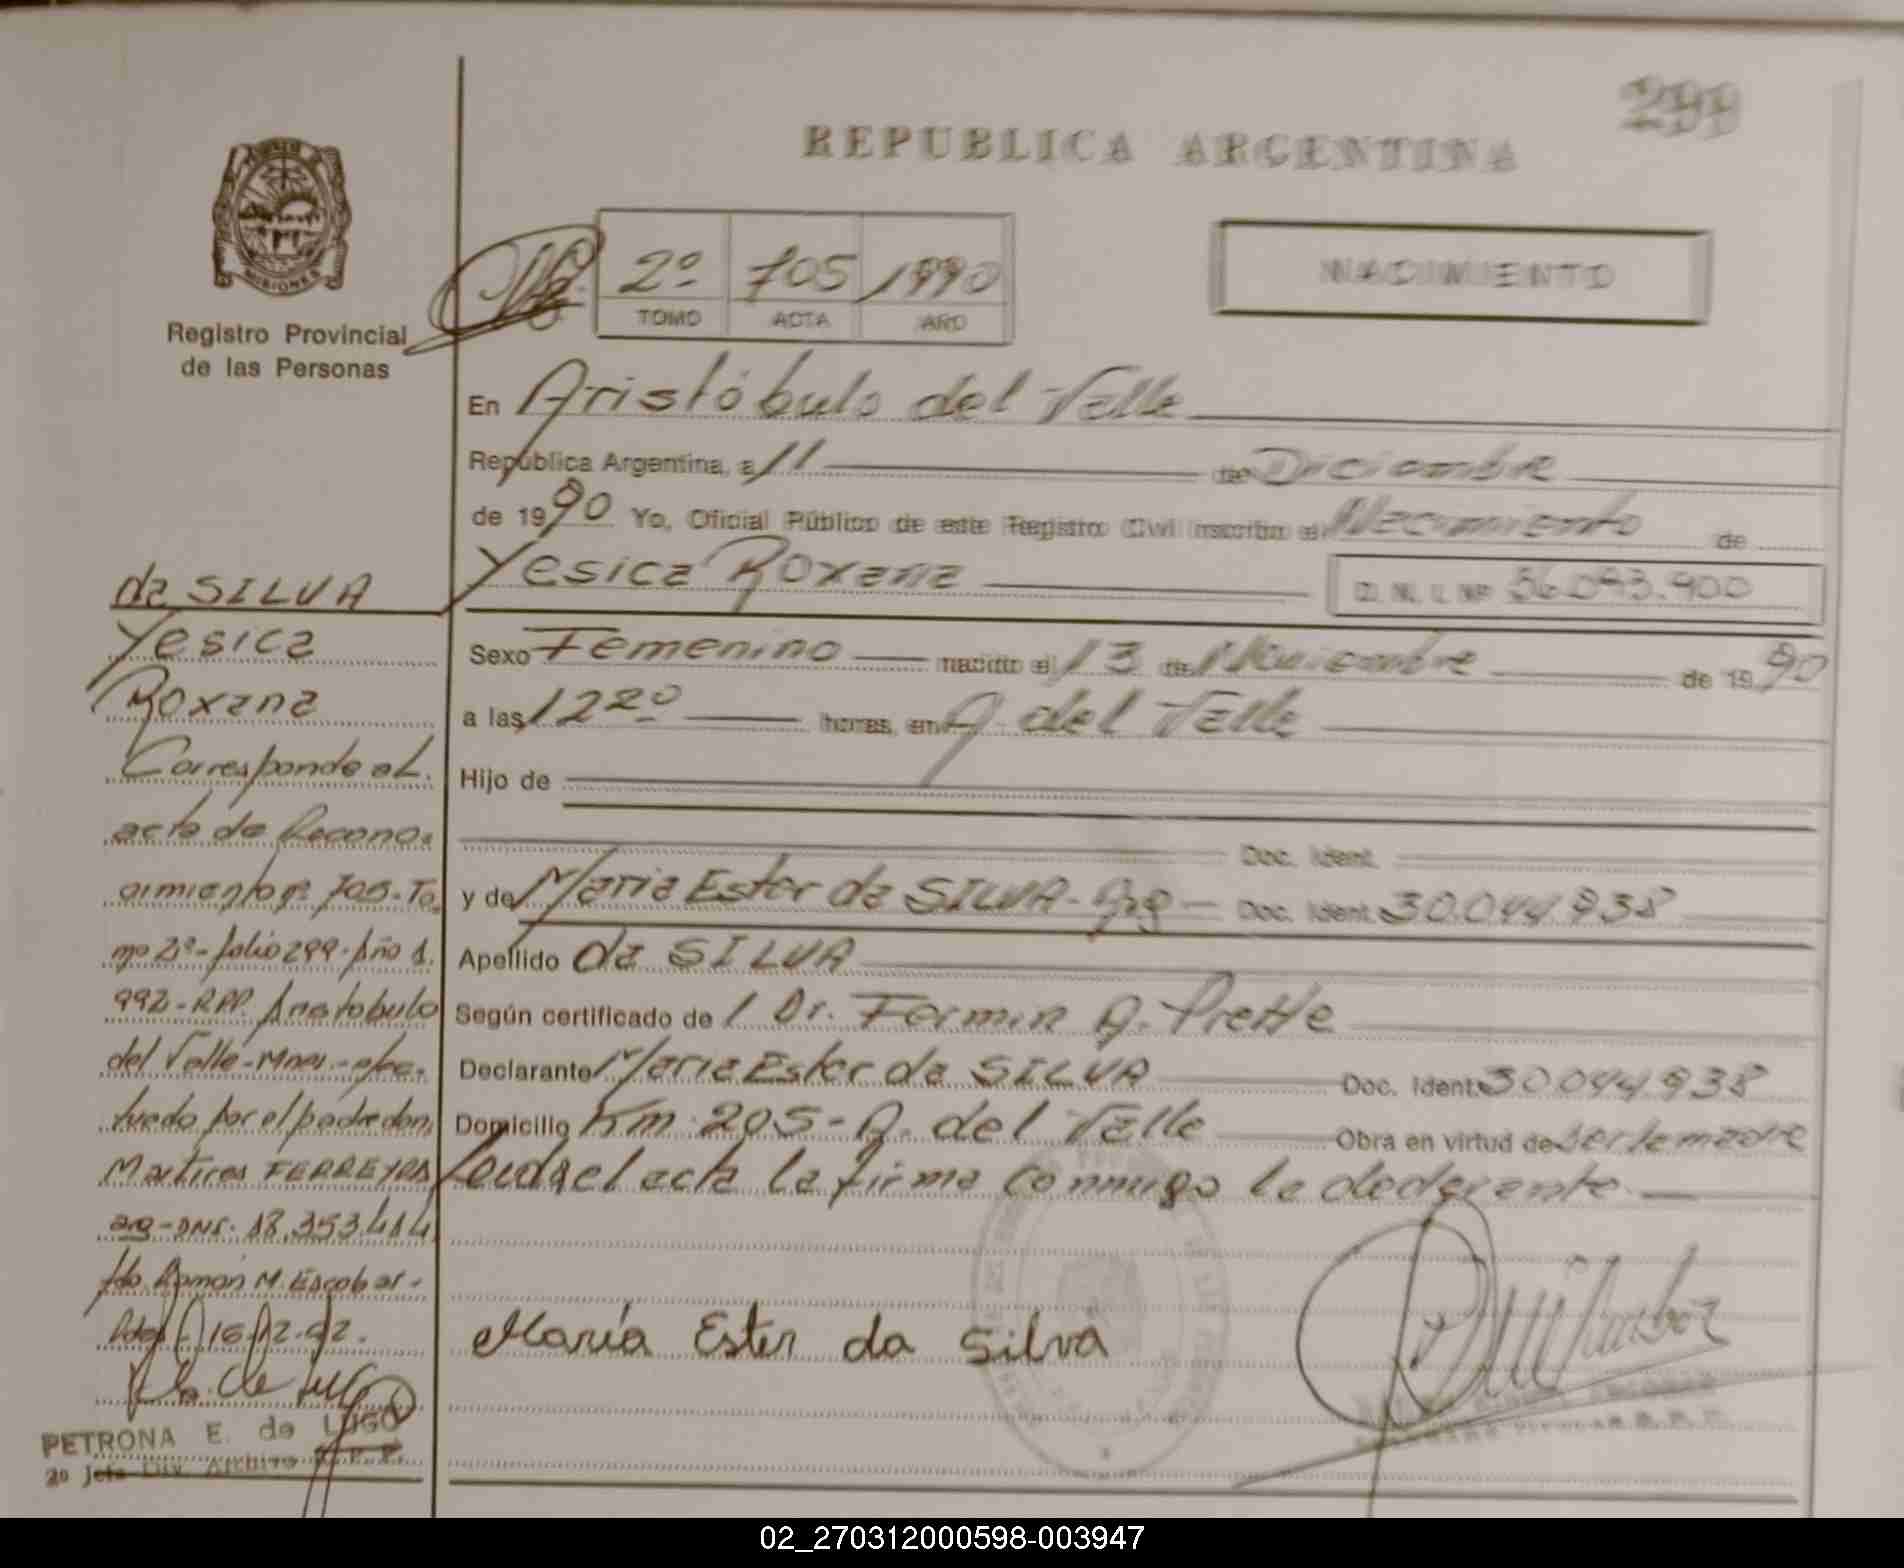 299
REPUBLICA ARGENTINA
MISIONES
Registro Provincial
de las Personas
2º 705 1990
TOMO ACTA AÑO
NACIMIENTO
En Aristóbulo del Valle
República Argentina, a 11 de Diciembre
de 1990 Yo, Oficial Público de este Registro Civil inscribo el Nacimiento de
Yesica Roxana D. N. I. Nº 36.093.900
Sexo Femenino nacido el 13 de Noviembre de 1990
a las 12 2º horas, en A. del Valle
Hijo de
Doc. Ident.
y de Maria Ester da SILVA - Arg - Doc. Ident. 30.044.938
Apellido da SILVA
Según certificado de / Dr. Fermin A. Prette
Declarante Maria Ester da SILVA Doc. Ident. 30.044.938
Domicilio Km 205 - A. del Valle Obra en virtud de ser la madre
Leida el acta la firma conmigo la declarante
María Ester da Silva
da SILVA
Yesica
Roxana
Corresponde al
acta de Recono.
cimiento nº 705-To.
mo 2º-folio 299-Año 1.
992-RPP. Aristobulo
del Valle-Mnes.-efec.
tuado por el padre don
Martires FERREYRA
arg-DNI. 18.353.414
fdo. Ramón M. Escobar-
16-12-92.
PETRONA E. de LUGO
2º Jefa Div. Archivo R. P. P.
02_270312000598-003947